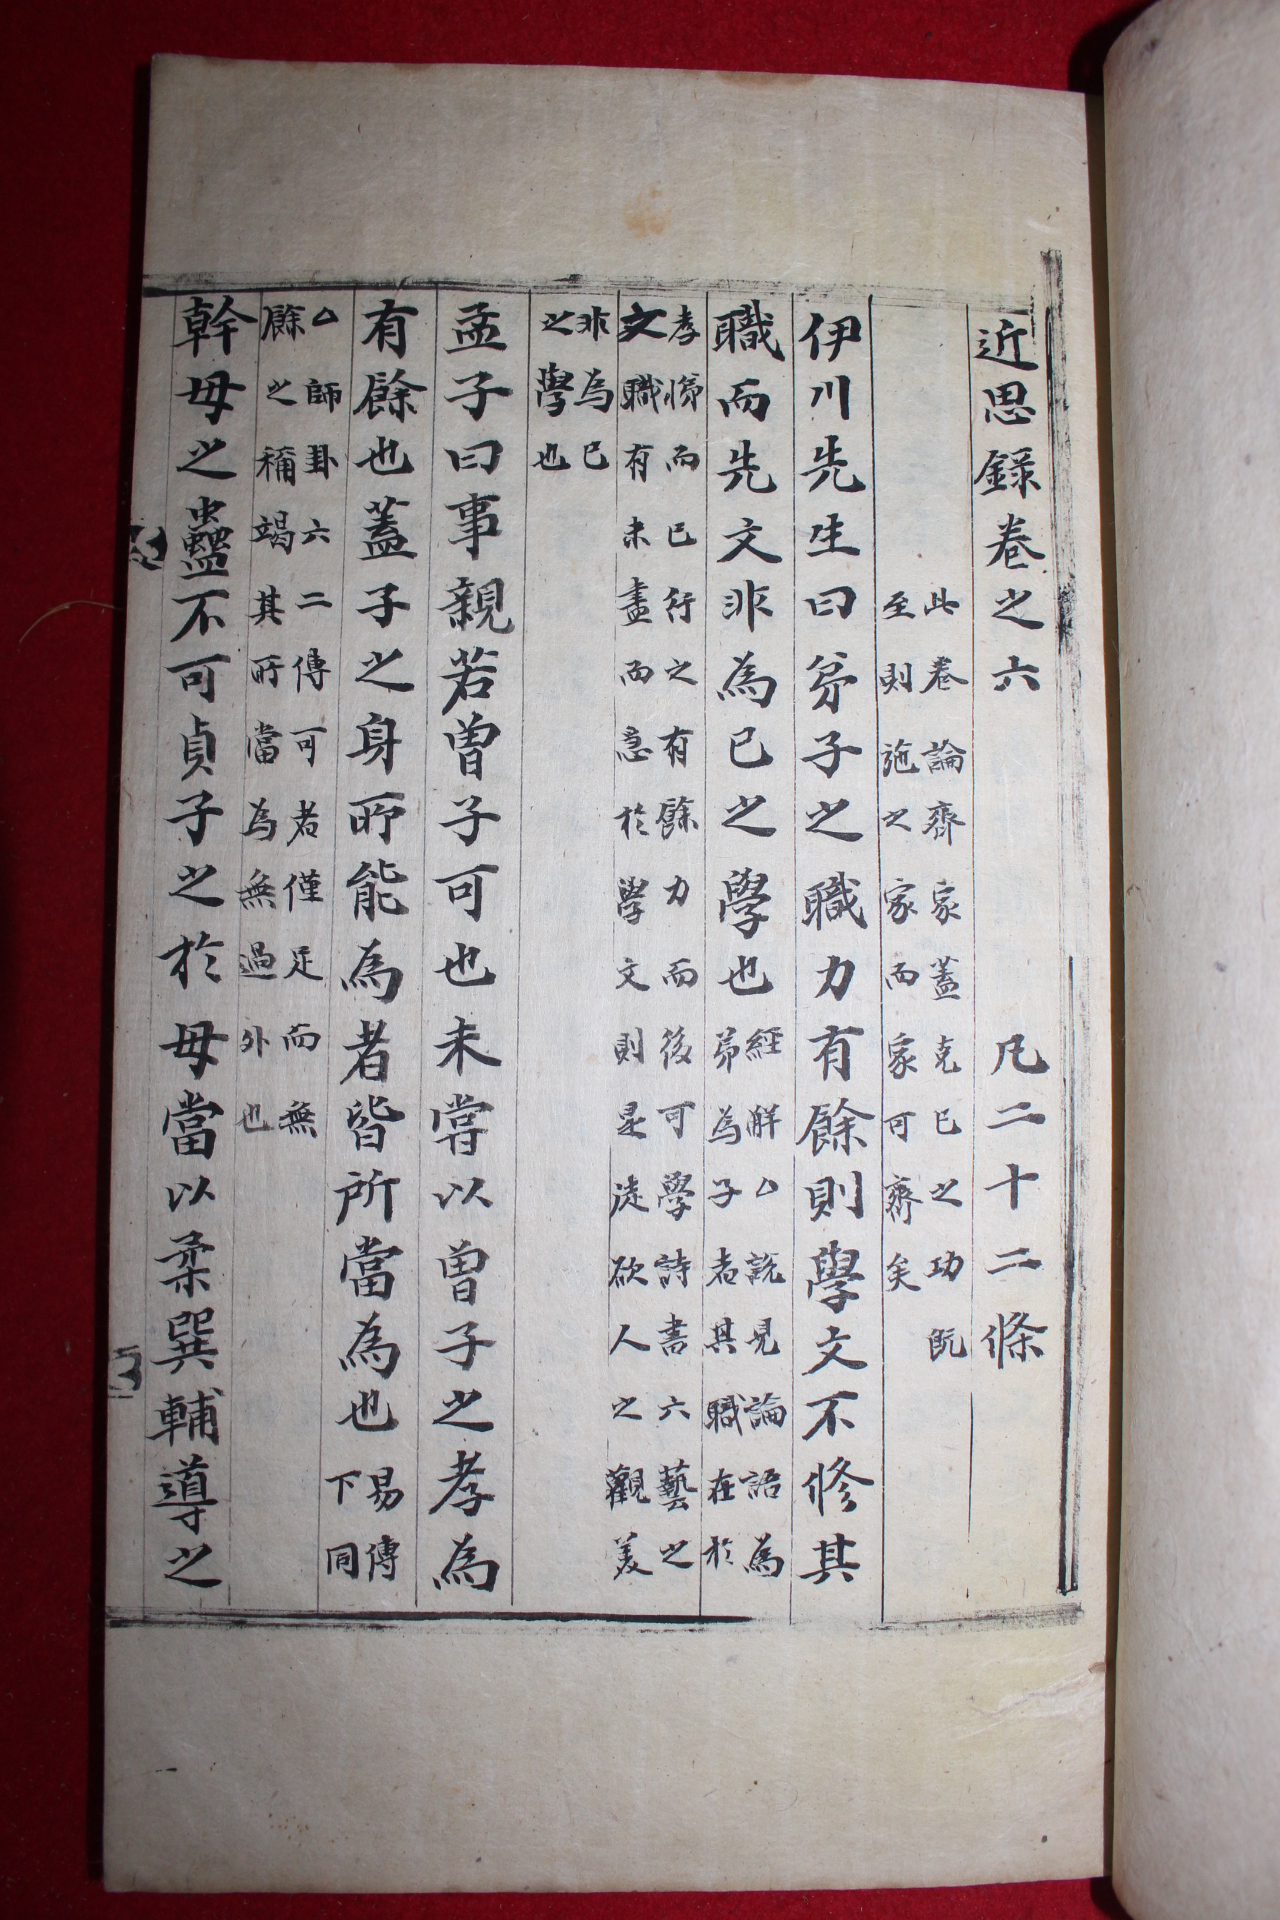 近思錄卷之六　凡二十二條
此卷論齊家蓋克已之功旣
至則施之家而家可齊矣
伊川先生曰弟子之職力有餘則學文不修其
職而先文非為已之學也
經解△說見論語為
弟為子者其職在於
孝悌而已行之有餘力而後可學詩書六藝之
文職有未盡而急於學文則是徒欲人之觀美
非為已
之學也
孟子曰事親若曾子可也未嘗以曾子之孝為
有餘也蓋子之身所能為者皆所當為也
易傳
下同
△師卦六二傳可者僅足而無
餘之稱竭其所當為無過外也
幹母之蠱不可貞子之於母當以柔巽輔導之